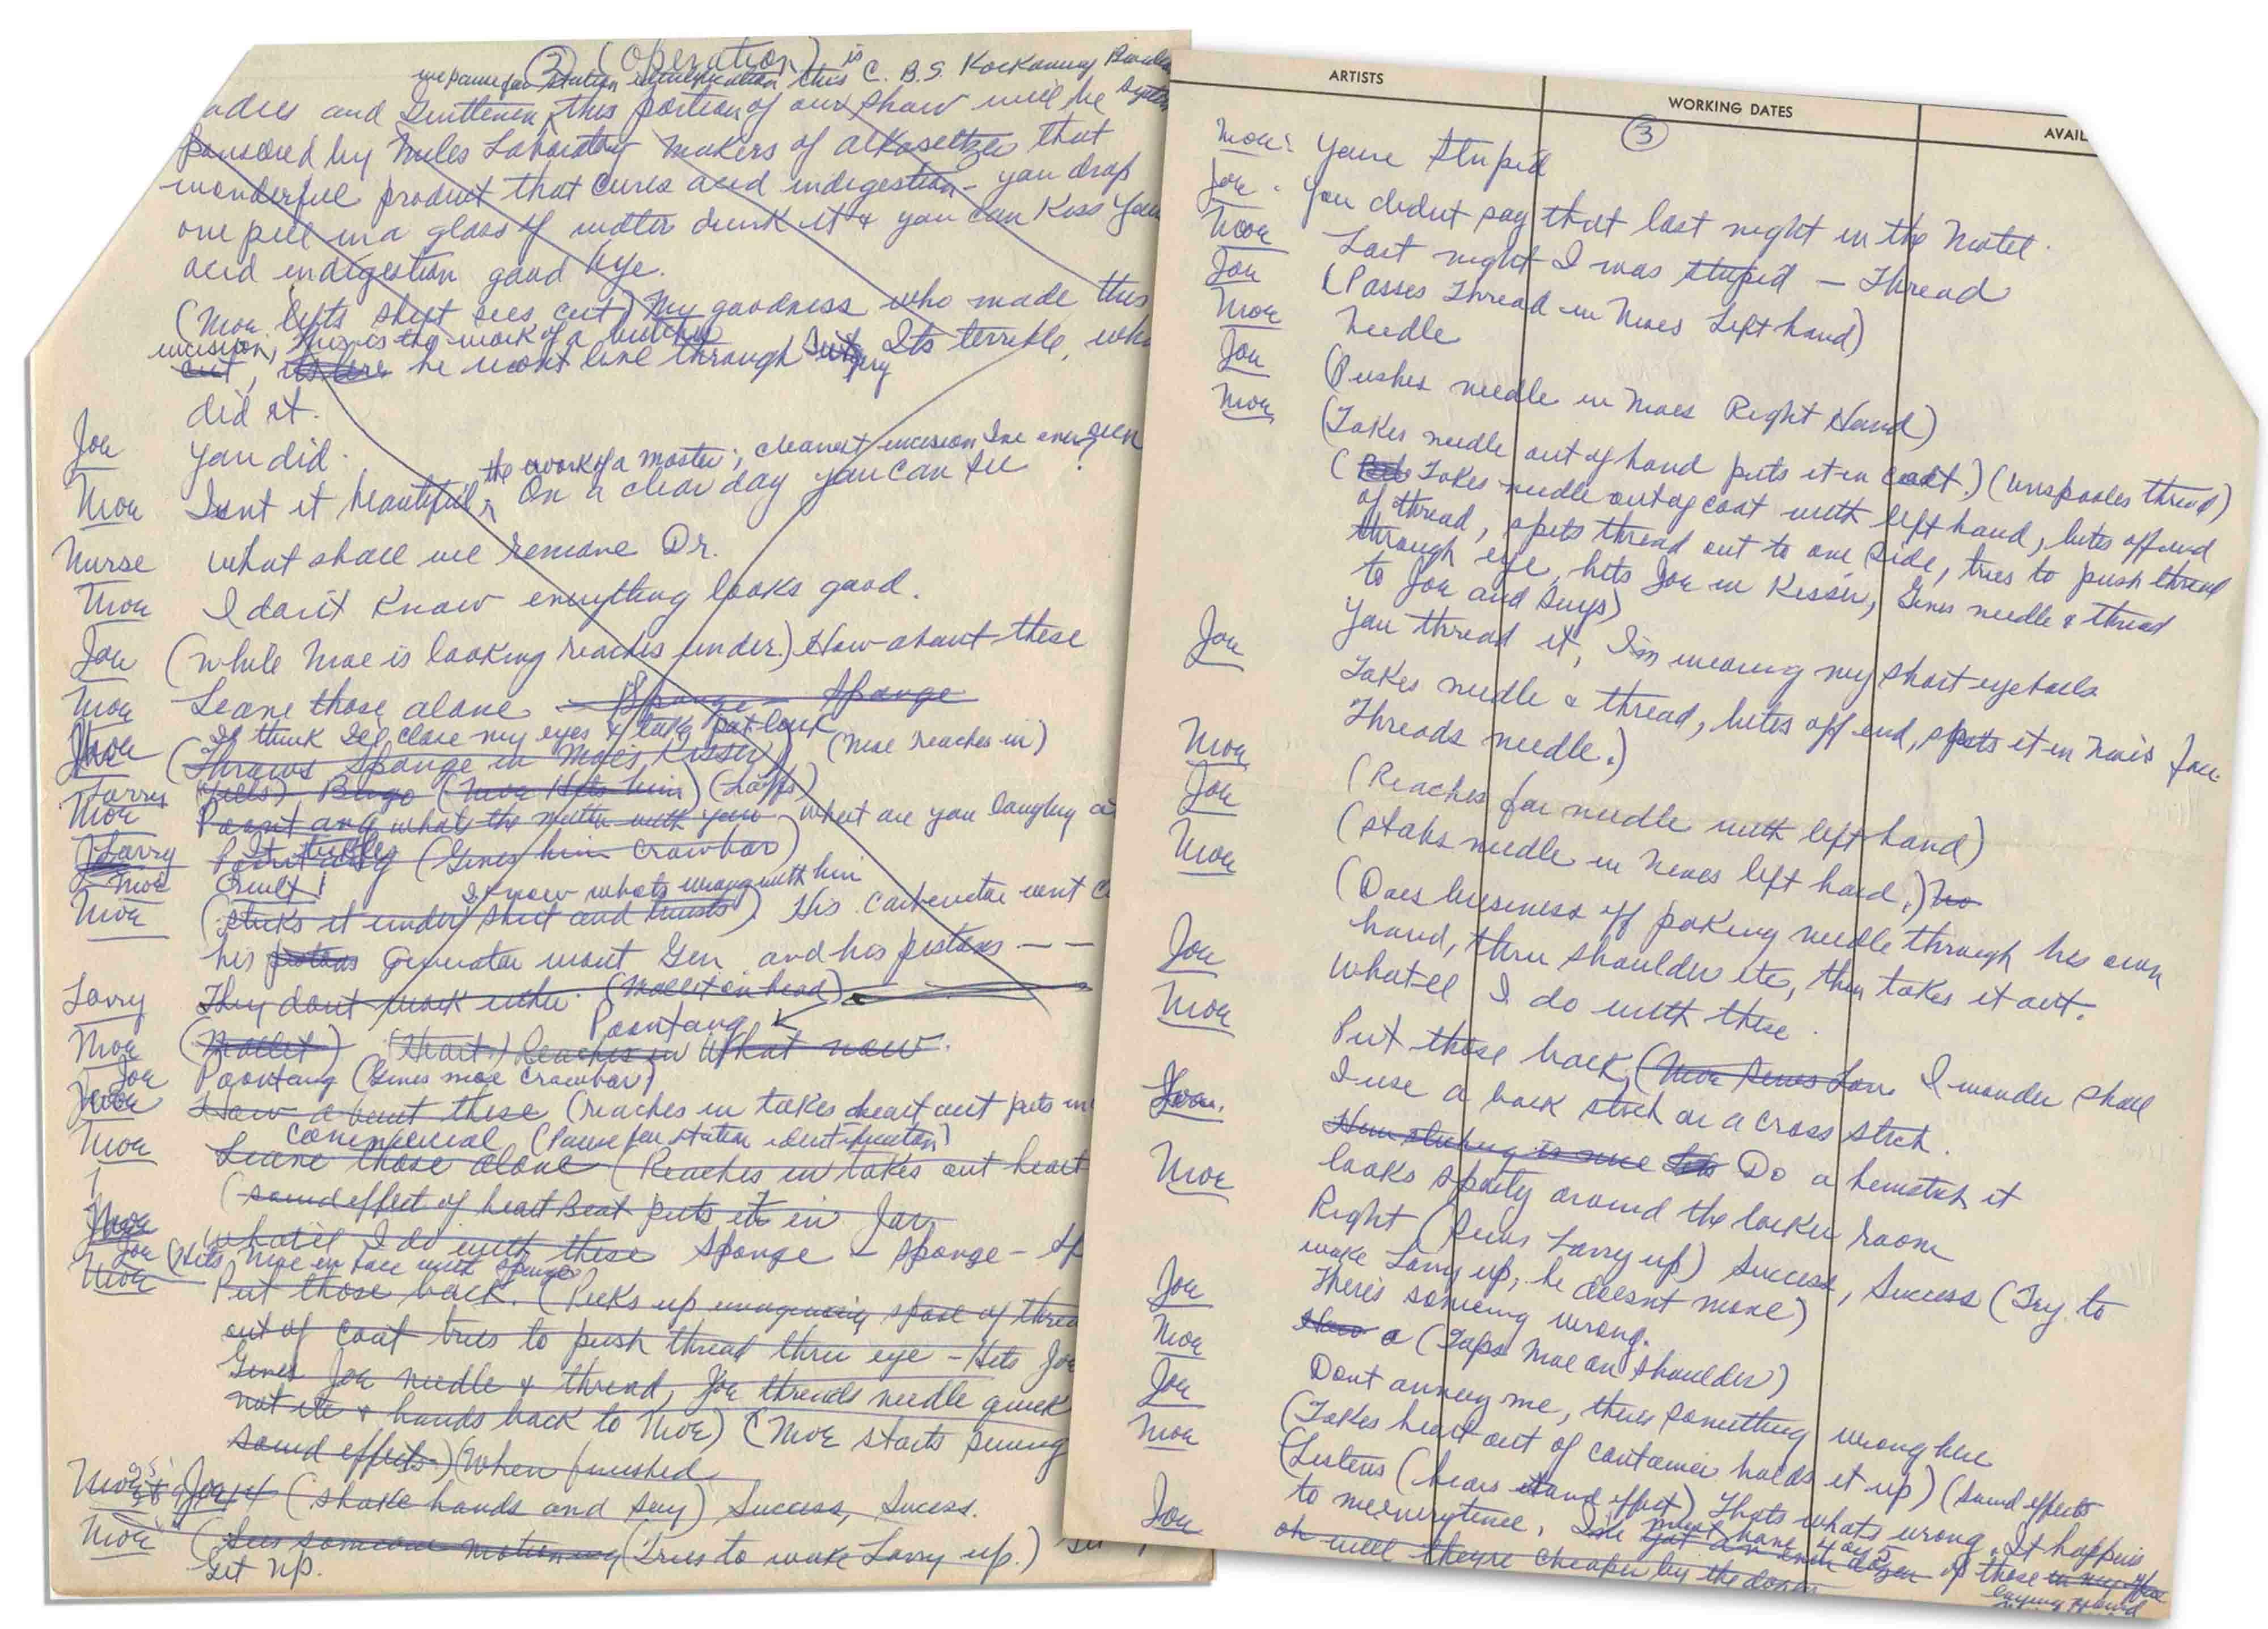 2 (Operation)
we pause for station identification this is C. B. S. Kockamay
adies and Gentlemen, this portion of our show will be System
ponsored by Miles Laboratory makers of alkaseltzer that
wonderful product that cures acid indigestion - you drop
one pill in a glass of water drink it & you can kiss your
acid indigestion good bye.
(Moe lifts sheet sees cut) My goodness who made this
incision, this is the work of a butcher
cut, he wont live through surgery Its terrible, who
did it.
Joe You did.
the work of a master, cleanest incision Ive ever seen
Moe Isnt it beautiful, On a clear day you can see
Nurse What shall we remove Dr.
Moe I don't know everything looks good.
Joe (While Moe is looking reaches under.) How about these
Moe Leave those alone Sponge - Sponge
I think Ill close my eyes & take pot luck (Moe reaches in)
(Throws Sponge in Moe's Kisser)
Larry (Yells) Bingo (Moe Hits him) (Laffs)
Moe Poontang whats the matter with you what are you laughing a
Larry It tickles Poontang (Gives him crowbar)
Moe Quiet! I know whats wrong with him
Moe (sticks it under sheet and twists) His carberator wont c
his pistons Generator wont Gen and his pistons - -
Larry They dont work either. (Mallet on head)
Poontang
Moe (Mallet) (Heart) Reaches in What now.
Joe Poontang (Gives moe crowbar)
How about these (reaches in takes heart out puts in
commercial (Pause for station identification)
Moe Leave those alone (Reaches in takes out heart
(sound effect of heart beat puts it in Jar
Moe whatll I do with these Sponge - Sponge - Sp
Joe (Hits Moe in face with sponge
Moe Put those back. (Picks up imaginary spool of threa
out of coat tries to push thread thru eye - Hits Joe
Gives Joe needle & thread, Joe threads needle quick
not it & hands back to Moe) (Moe starts sewing
sound effects.) (When finished
Moe & Joe (shake hands and say) Success, Sucess.
Moe (Sees someone motioning (Tries to wake Larry up.)
Get up.
ARTISTS WORKING DATES AVAIL
3
Moe: Youre Stupid
Joe. You didnt say that last night in the Motel.
Moe Last night I was stupid - Thread
Joe (Passes Thread in Moes Left hand)
Moe Needle
Joe (Pushes needle in Moes Right Hand)
Moe (Takes needle out of hand puts it in coat.) (unspools thread)
(Takes needle out of coat with left hand, bites off end
of thread, spits thread out to one side, tries to push thread
through eye, hits Joe in Kisser, Gives needle & thread
to Joe and says)
You thread it, I'm wearing my short eyeballs
Joe Takes needle & thread, bites off end, spits it in Moe's face
Threads needle.)
Moe (Reaches for needle with left hand)
Joe (stabs needle in Moes left hand.)
Moe (Does business of poking needle through his own
hand, thru shoulder etc, then takes it out.
Joe Whatell I do with these.
Moe Put those back, (Moe sews I wonder shall
I use a back stich or a cross stich.
Joe. How stiching is nice Do a hemstich it
looks sporty around the locker room
Moe Right (Sews Larry up) Success, Success (Try to
wake Larry up, he doesnt move)
There's someing wrong.
Joe a (Taps Moe on shoulder)
Moe Dont annoy me, theres something wrong here
Joe (Takes heart out of container holds it up) (sound effects
Moe (Listens (hears sound effect) Thats whats wrong. It happens
to me everytime, must have 4 or 5 of these laying around
Joe oh well theyre cheaper by the dozen